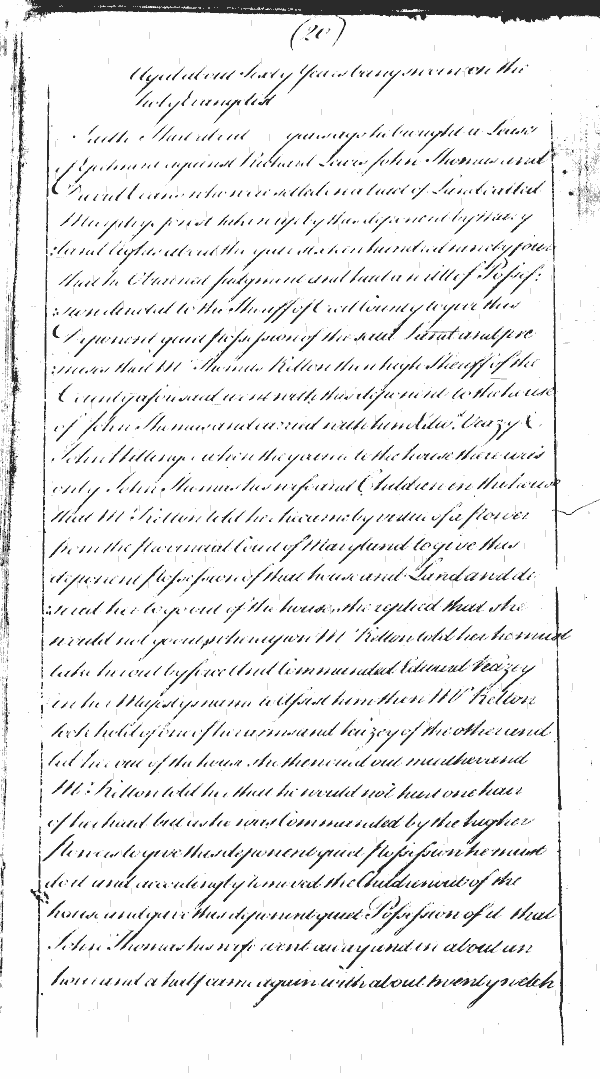 (20)
Aged about Sixty Years being sworn on the
holy Evangelist
Saith that about years ago he brought a Lease
of Ejectment against Richard Lewis John Thomas and
David Evans who were settled on a tract of Land called
forest taken up by this deponent by
land about the year sixteen hundred ninety four
that he Obtained Judgment and had a writt of Posses:
:sion directed to the Sheriff of Cecil County to give this
Deponent quiet possession of the said Land and pre
:mises that Mr Thomas Kelton then high Sheriff of the
County aforesaid went with this deponent to the house
of John Thomas and carried with him Edwd. Veazy &
John when they came to the house there was
only John Thomas his wife and Children in the house
that Mr Kelton told her he came by virtue of a power
from the Provincial Court of Maryland to give this
deponent possession of that house and Land and de
:sired her to go out of the house, she replied that she
would not go out, whereupon Mr Kelton told her he must
take her out by force And Commanded Edward Veazey
in her Majestys name to Assist him then Mr Kelton
took hold of one of her arms and Veizey of the other and
led her out of the house she then cried out murther and
Mr. Kelton told her that he would not hurt one hair
of her head but as he was Commanded by the higher
Powers to give this deponent quiet Possession he must
do it and accordingly removed the Children out of the
house and gave this deponent quiet Possession of it that
John Thomas his wife went away and in about an
hour and a half came again with about twenty welch